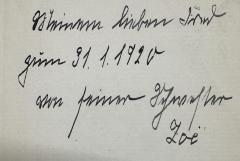 Meinem lieben Fred
zum 31.1.1920
von seiner Schwester
Zoë